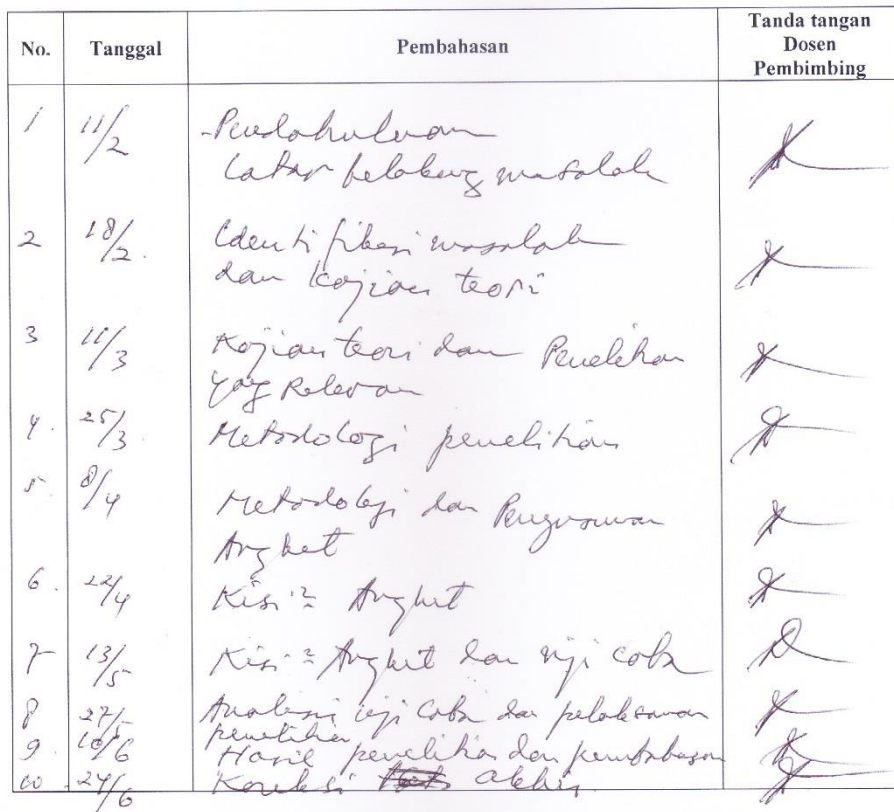 No. Tanggal Pembahasan Tanda tangan
Dosen
Pembimbing
1 11/2 - Pendahuluan
Latar belakang masalah
2 18/2. Identifikasi masalah
dan Kajian teori
3 11/3 Kajian teori dan Penelitian
yang Relevan
4. 25/3 Metodologi penelitian
5. 8/4 Metodologi dan Penyusunan
Angket
6. 22/4 Kisi-2 Angket
7 13/5 Kisi-2 Angket dan uji coba
8 27/5 Analisis uji coba dan pelaksanaan
penelitian
9. 10/6 Hasil penelitian dan pembahasan
10. 24/6 Koreksi akhir